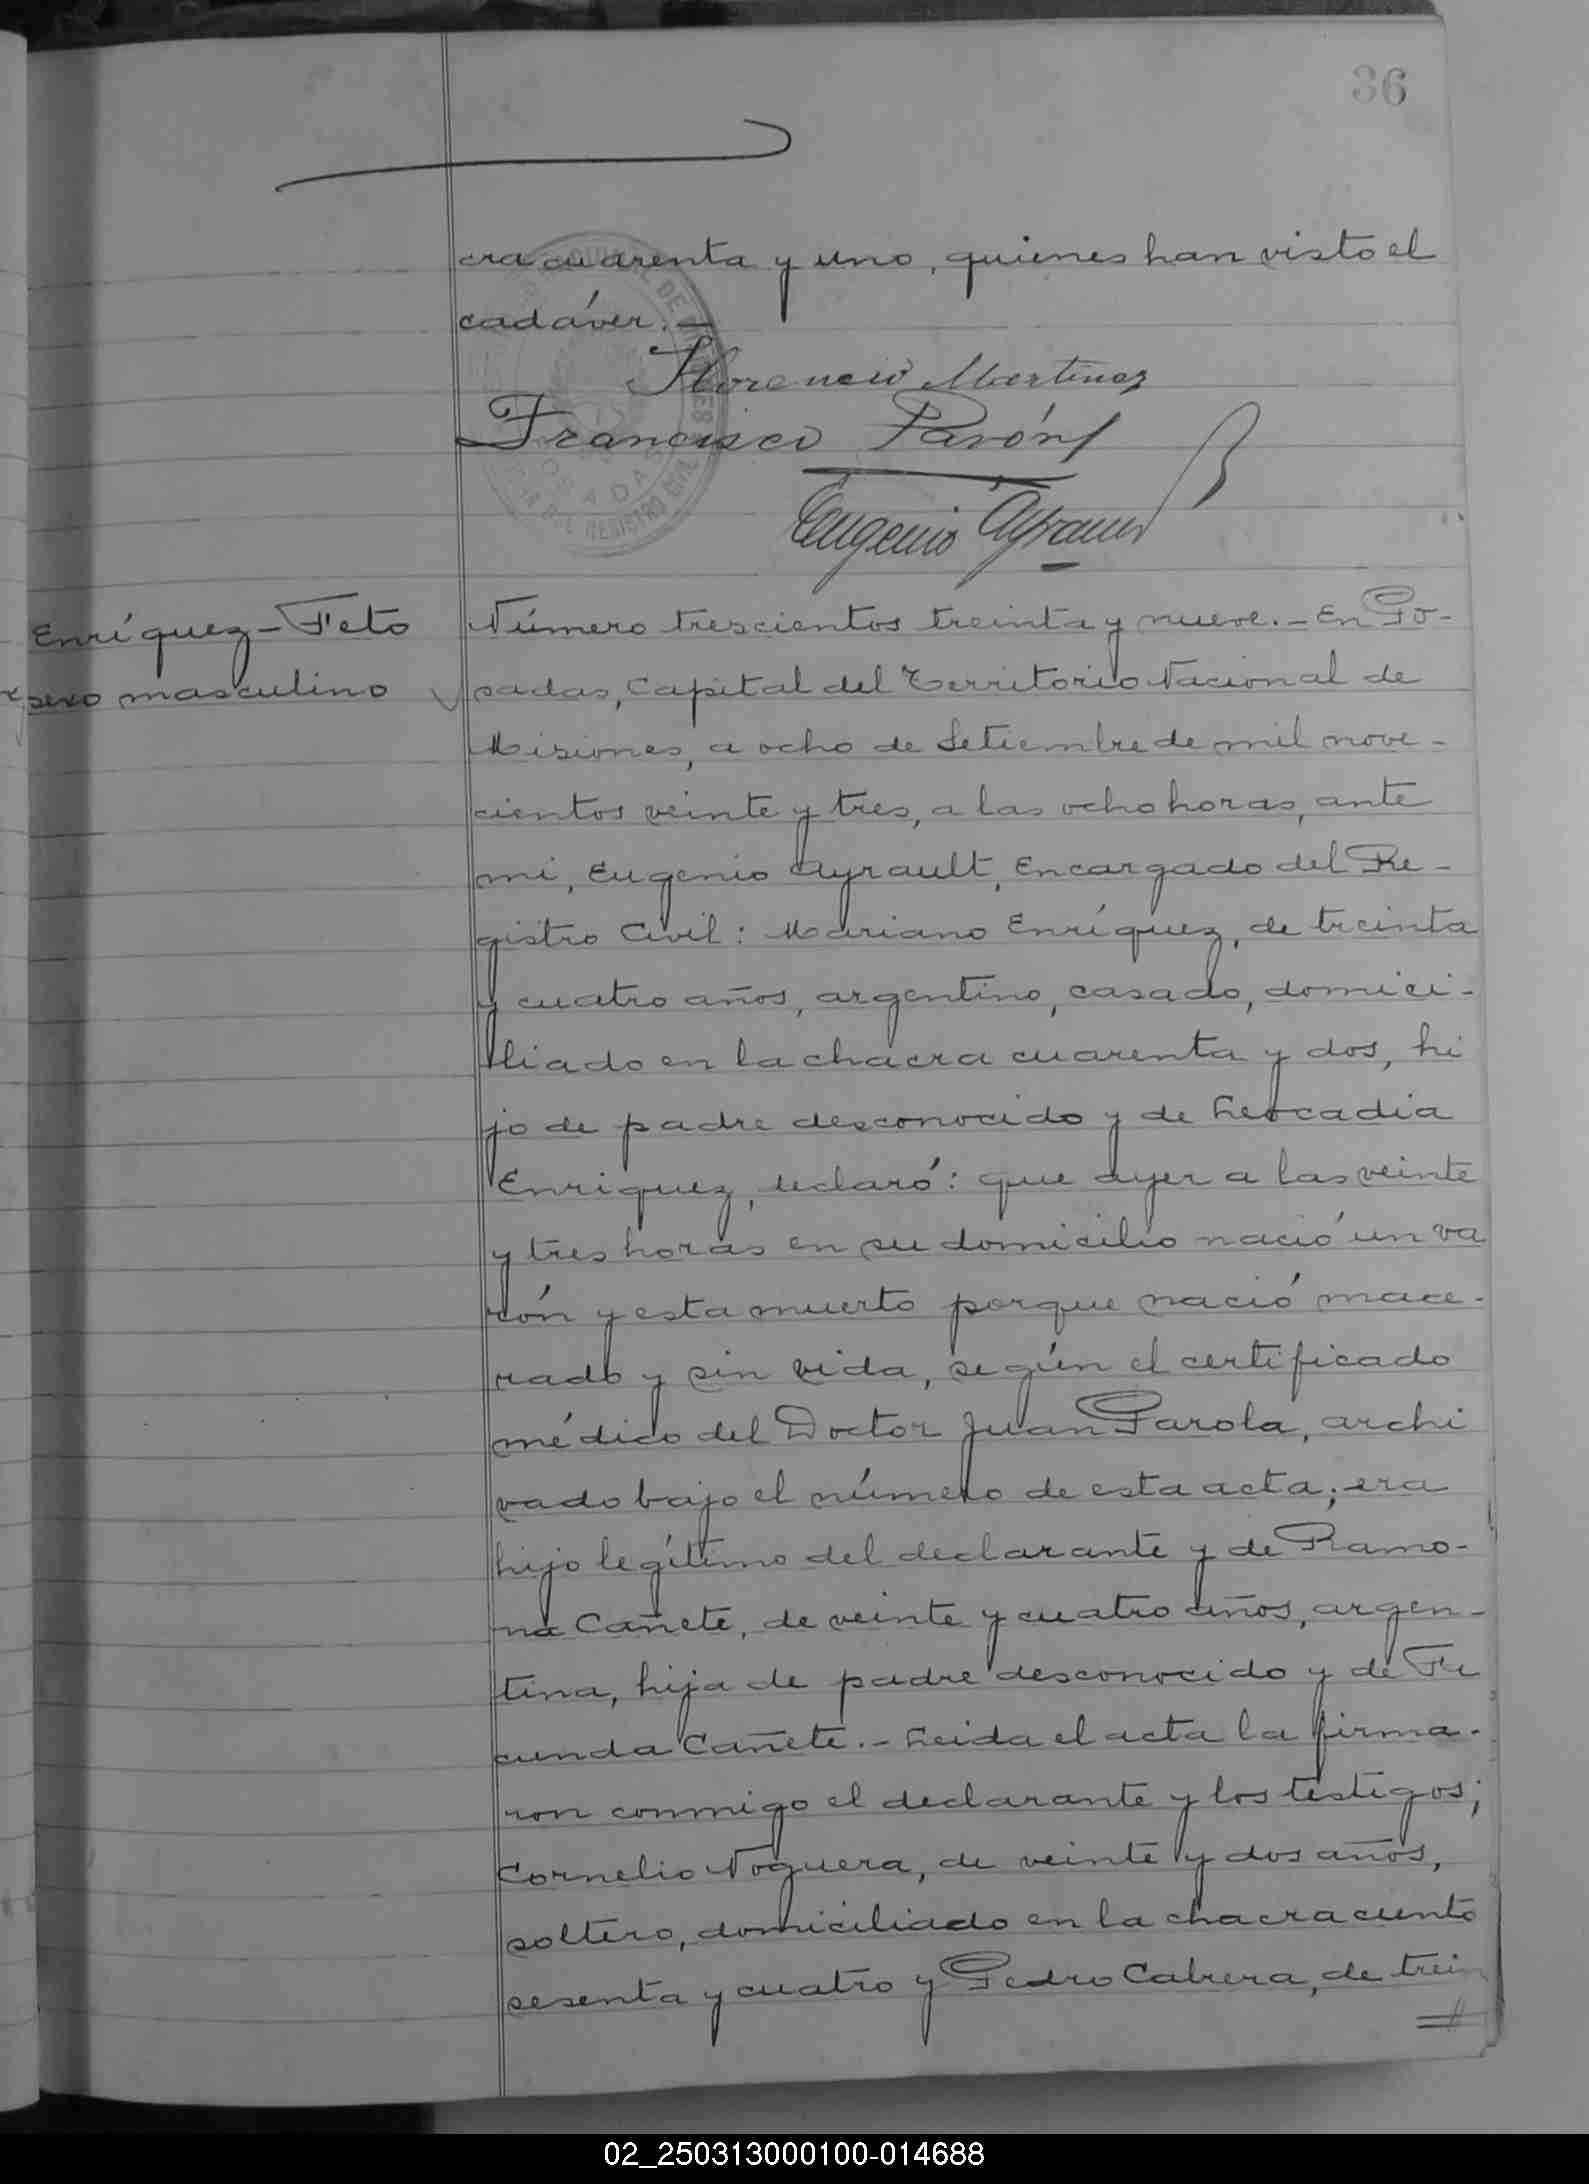 36
cra cuarenta y uno, quienes han visto el
cadáver.—
Florencio Martinez
Francisco Pavón
Eugenio Ayrault
POSADAS
REGISTRO CIVIL
Enríquez - Feto
sexo masculino
Número trescientos treinta y nueve.- En Po-
sadas, Capital del Territorio Nacional de
Misiones, a ocho de Setiembre de mil nove-
cientos veinte y tres, a las ocho horas, ante
mi, Eugenio Ayrault, Encargado del Re-
gistro Civil: Mariano Enríquez, de treinta
y cuatro años, argentino, casado, domici-
liado en la chacra cuarenta y dos, hi
jo de padre desconocido y de Leocadia
Enriquez, declaró: que ayer a las veinte
y tres horas en su domicilio nació un va
rón y esta muerto porque nació mace-
rado y sin vida, según el certificado
médico del Doctor Juan Parola, archi
vado bajo el número de esta acta; era
hijo legítimo del declarante y de Ramo-
na Cañete, de veinte y cuatro años, argen-
tina, hija de padre desconocido y de Fe
cunda Cañete.- Leida el acta la firma-
ron conmigo el declarante y los testigos;
Cornelio Noguera, de veinte y dos años,
soltero, domiciliado en la chacra ciento
sesenta y cuatro y Pedro Cabrera, de trein
02_250313000100-014688